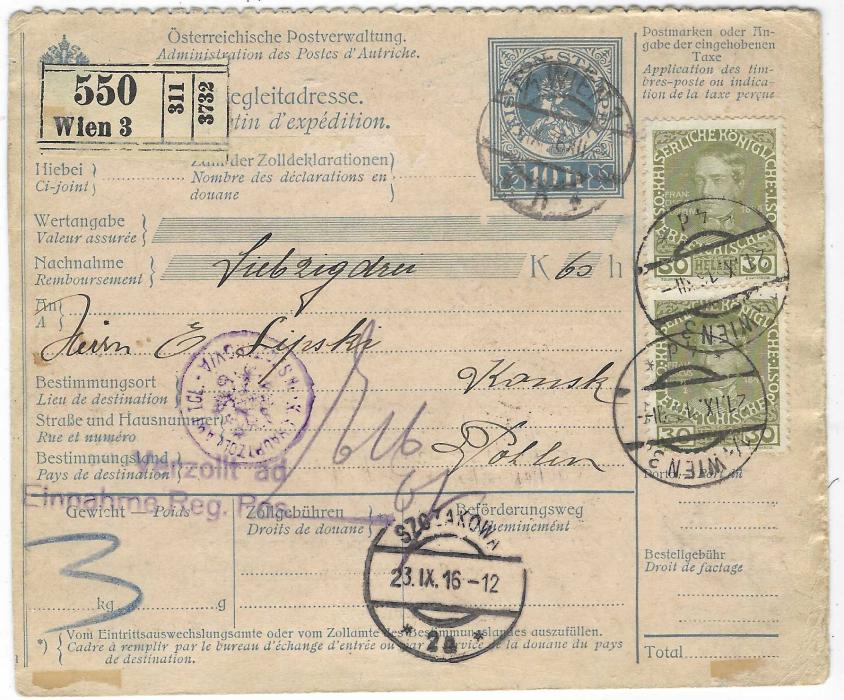 Österreichische Postverwaltung.
Administration des Postes d'Autriche.
Postmarken oder An-
gabe der eingehobenen
Taxe
Application des tim-
bres-poste ou indica-
tion de la taxe perçue
550
Wien 3
311
3732
egleitadresse.
tin d'expédition.
KAIS. KÖN. STEMPEL
10 h
Hiebei
Ci-joint
Zahl der Zolldeklarationen
Nombre des déclarations en
douane
KAISERLICHE KÖNIGLICHE
ÖSTERREICHISCHE
30 HELLER 30
Wertangabe
Valeur assurée
Nachnahme
Remboursement
Siebzigdrei K 60 h
An
A
Herrn E Lipski
WIEN 3
Bestimmungsort
Lieu de destination
Konsk
Straße und Hausnummer
Rue et numéro
Bestimmungsland
Pays de destination
Pohlen
30 30
21.IX.
WIEN 3
Verzollt ad
Einnahme Reg. Pos.
Gewicht — Poids
Zollgebühren
Droits de douane
Beförderungsweg
Acheminement
3
kg g
SZCZAKOWA
23.IX.16-12
* 2a *
Bestellgebühr
Droit de factage
*) Vom Eintrittsauswechslungsamte oder vom Zollamte des Bestimmungslandes auszufüllen.
Cadre à remplir par le bureau d'échange d'entrée ou par le service de la douane du pays
de destination.
Total